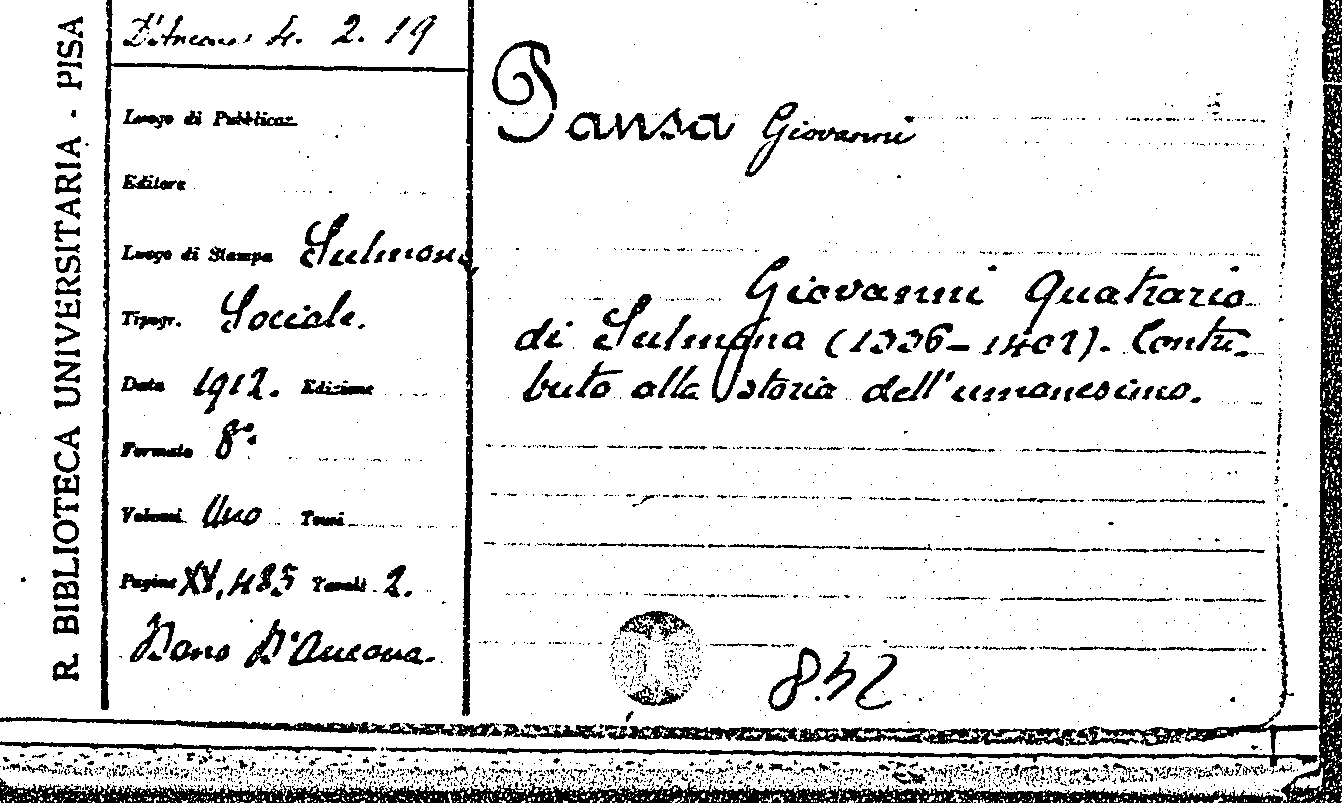 R. BIBLIOTECA UNIVERSITARIA - PISA
D'Ancona 4. 2. 19
Luogo di Pubblicaz.
Editore
Luogo di Stampa Sulmona,
Tipogr. Sociale.
Data 1912. Edizione
Formato 8°.
Volumi Uno Tomi
Pagine XX, 485 Tavole 2.
Dono D'Ancona.
Pansa Giovanni
Giovanni Quatrario
di Sulmona (1336-1402). Contri-
buto alla storia dell'umanesimo.
842